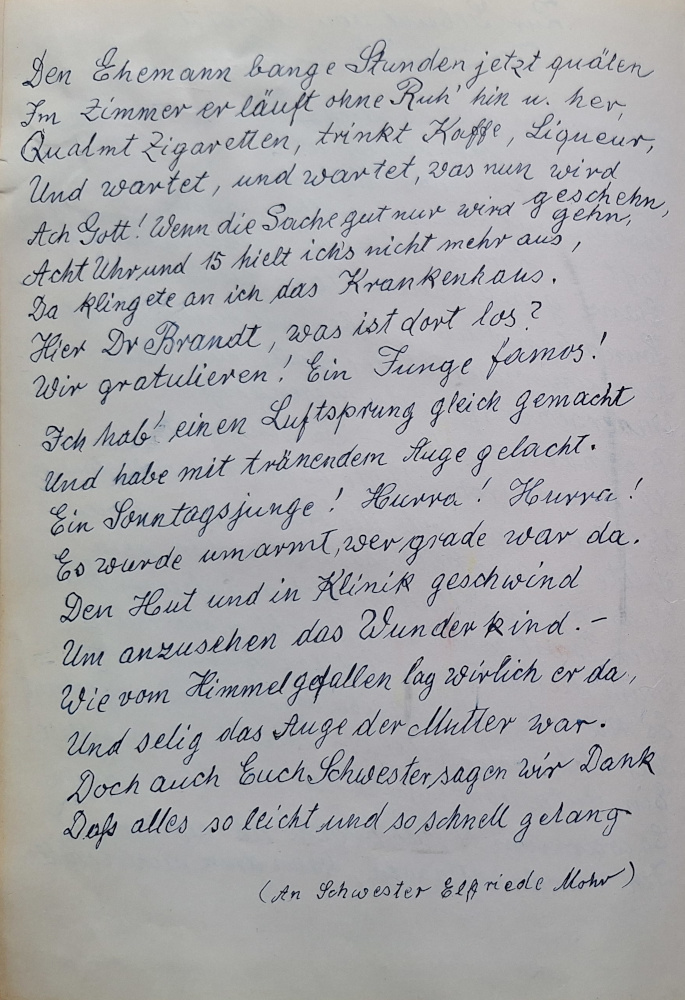 Den Ehemann bange Stunden jetzt quälen
Im Zimmer er läuft ohne Ruh' hin u. her,
Qualmt Zigaretten, trinkt Kaffe, Liqueur,
Und wartet, und wartet, was nun wird geschehn,
Ach Gott! Wenn die Sache gut nur wird gehn,
Acht Uhr und 15 hielt ich's nicht mehr aus,
Da klingete an ich das Krankenhaus.
Hier Dr Brandt, was ist dort los?
Wir gratulieren! Ein Junge famos!
Ich hab' einen Luftsprung gleich gemacht
Und habe mit tränendem Auge gelacht.
Ein Sonntagsjunge! Hurra! Hurra!
Es wurde umarmt, wer grade war da.
Den Hut und in Klinik geschwind
Um anzusehen das Wunderkind. –
Wie vom Himmel gefallen lag wirlich er da,
Und selig das Auge der Mutter war.
Doch auch Euch Schwester, sagen wir Dank
Daß alles so leicht und so schnell gelang
(An Schwester Elfriede Mohr)